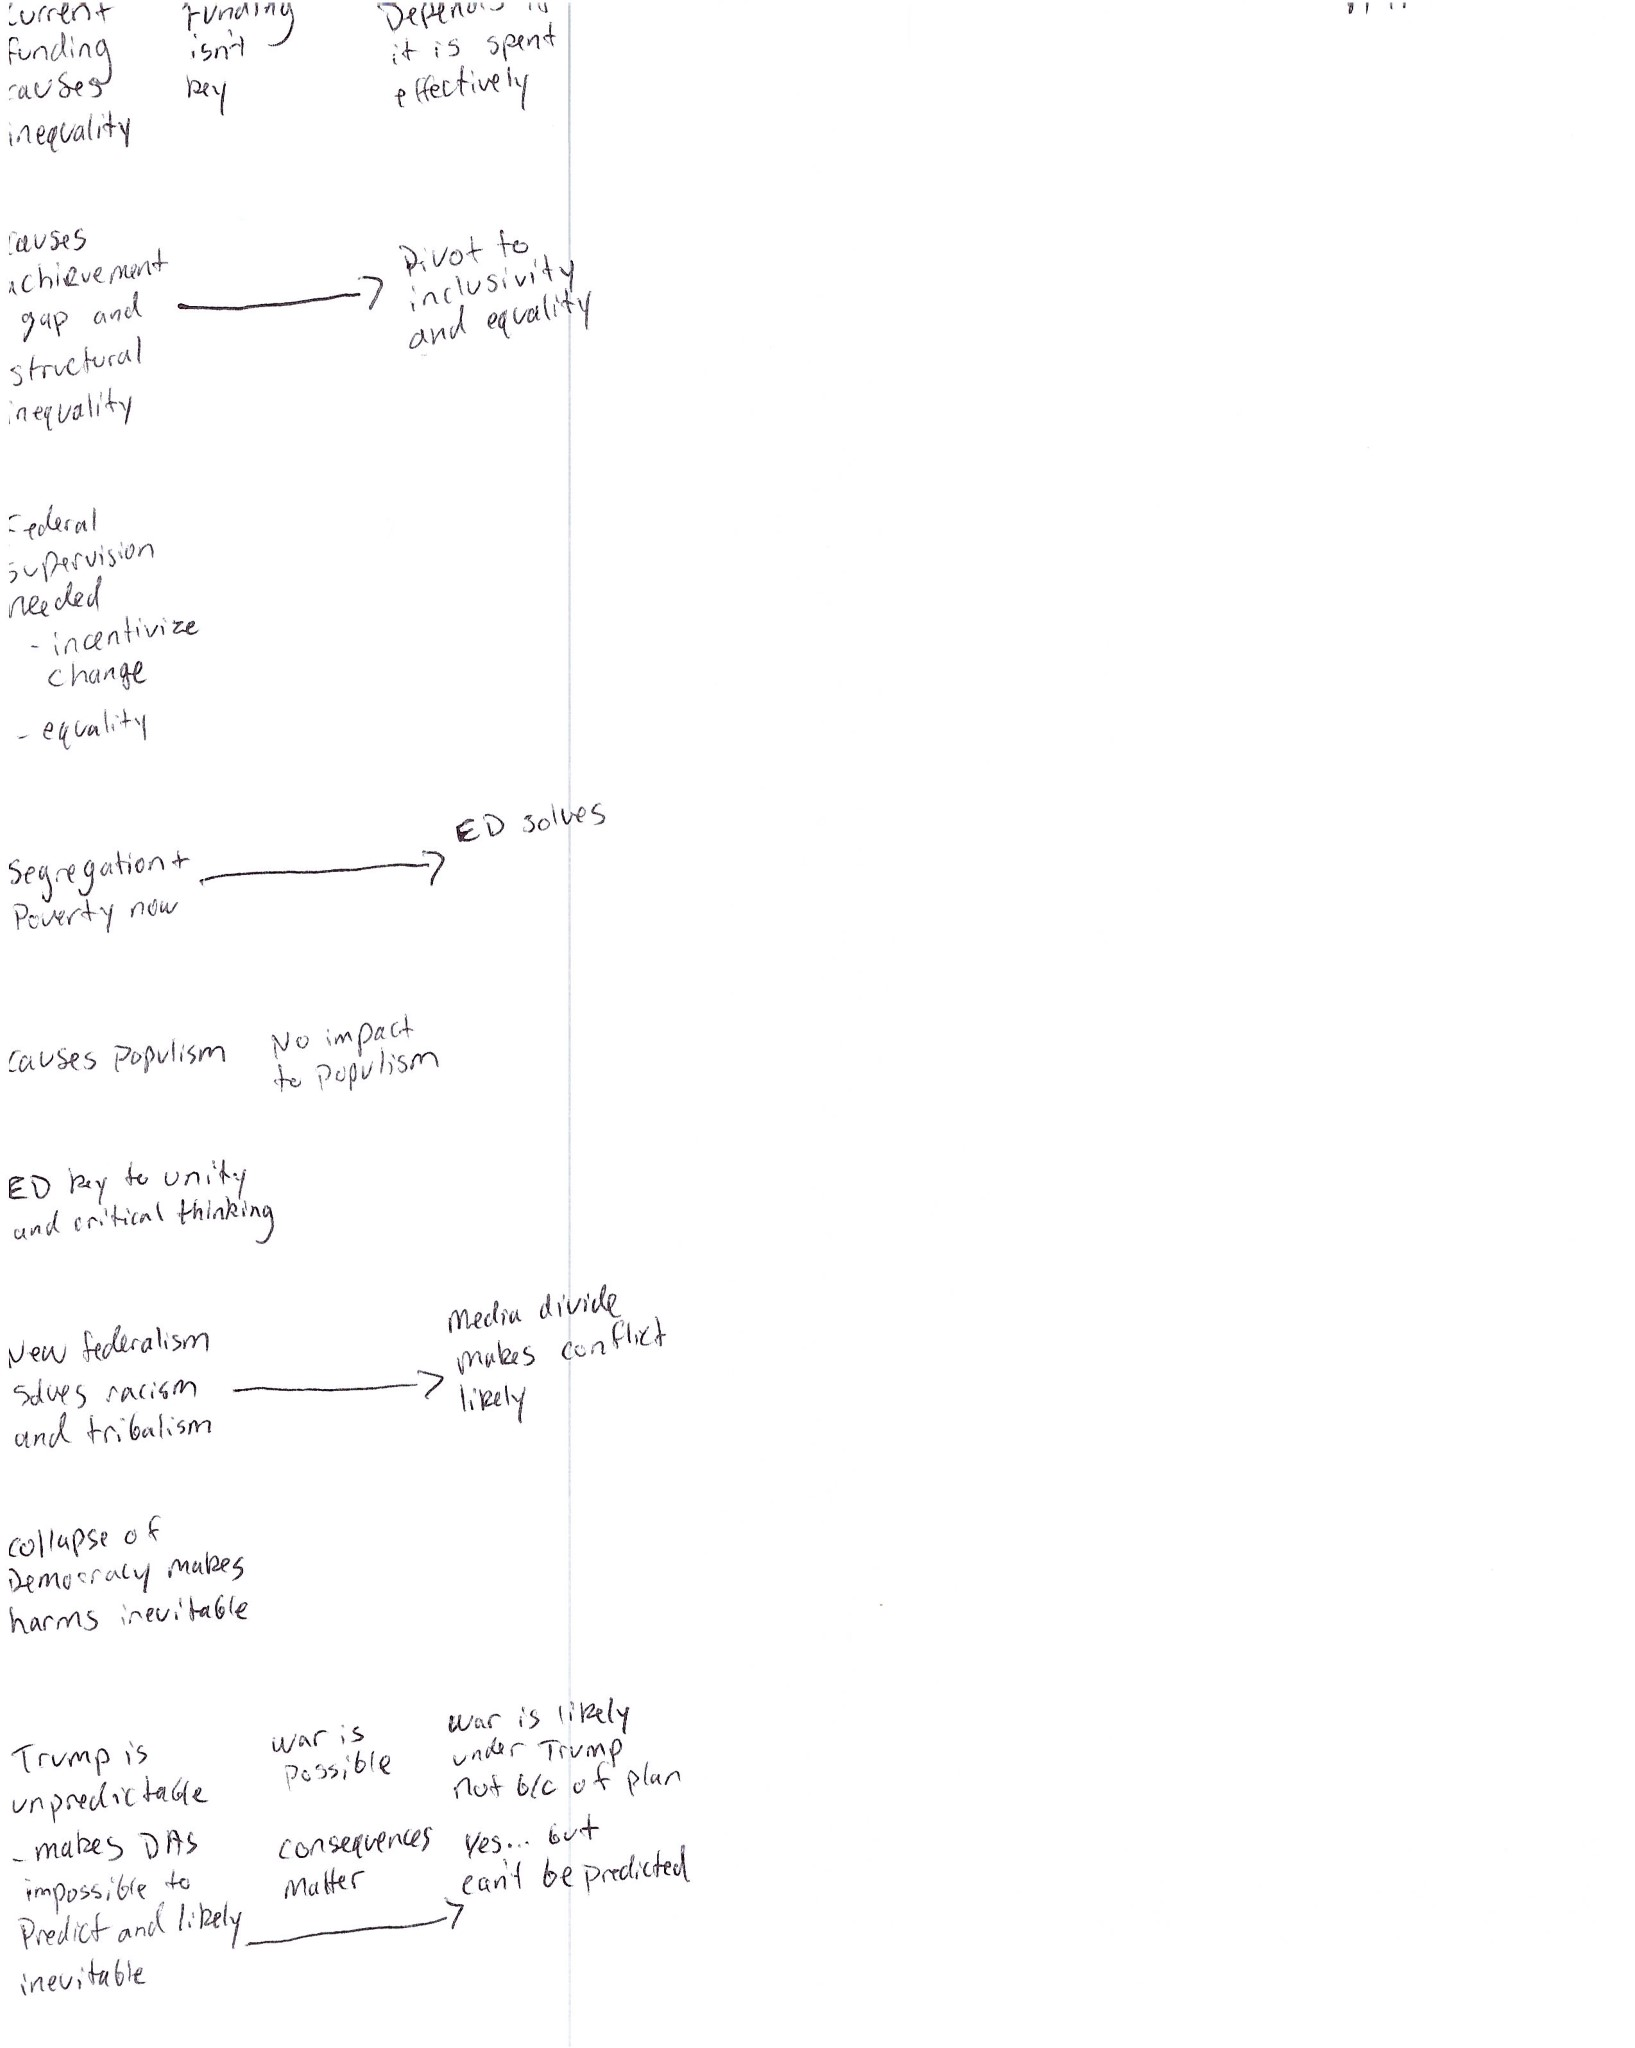 current
funding
causes
inequality
Funding
isn't
key
Depends if
it is spent
effectively
causes
achievement
gap and
structural
inequality
Pivot to
inclusivity
and equality
Federal
supervision
needed
- incentivize
change
- equality
Segregation +
Poverty now
ED solves
causes populism
No impact
to populism
ED key to unity
and critical thinking
New federalism
solves racism
and tribalism
Media divide
makes conflict
likely
collapse of
Democracy makes
harms inevitable
Trump is
unpredictable
- makes DAs
impossible to
Predict and likely
inevitable
war is
possible
consequences
matter
war is likely
under Trump
not b/c of plan
yes... but
can't be predicted